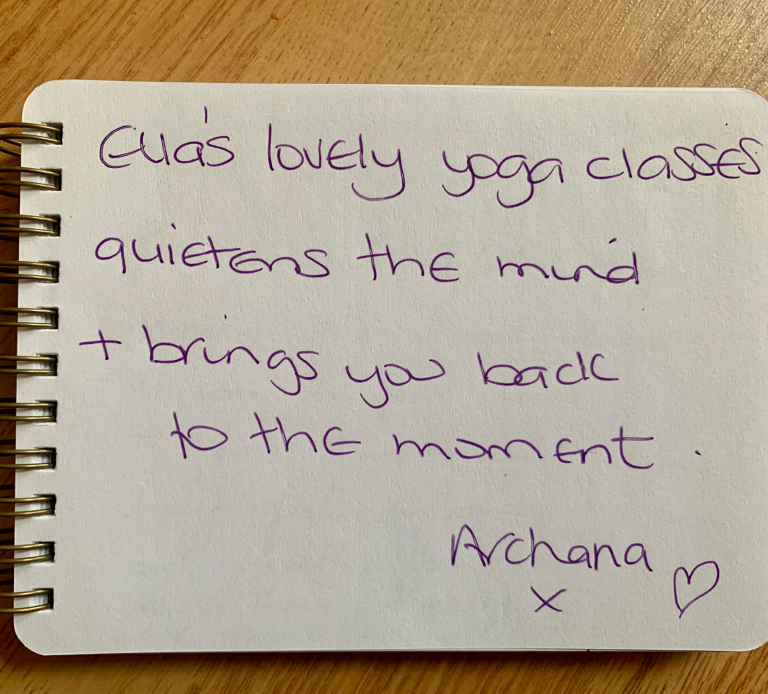 Ella's lovely yoga classes
quietens the mind
+ brings you back
to the moment.
Archana
x ♡